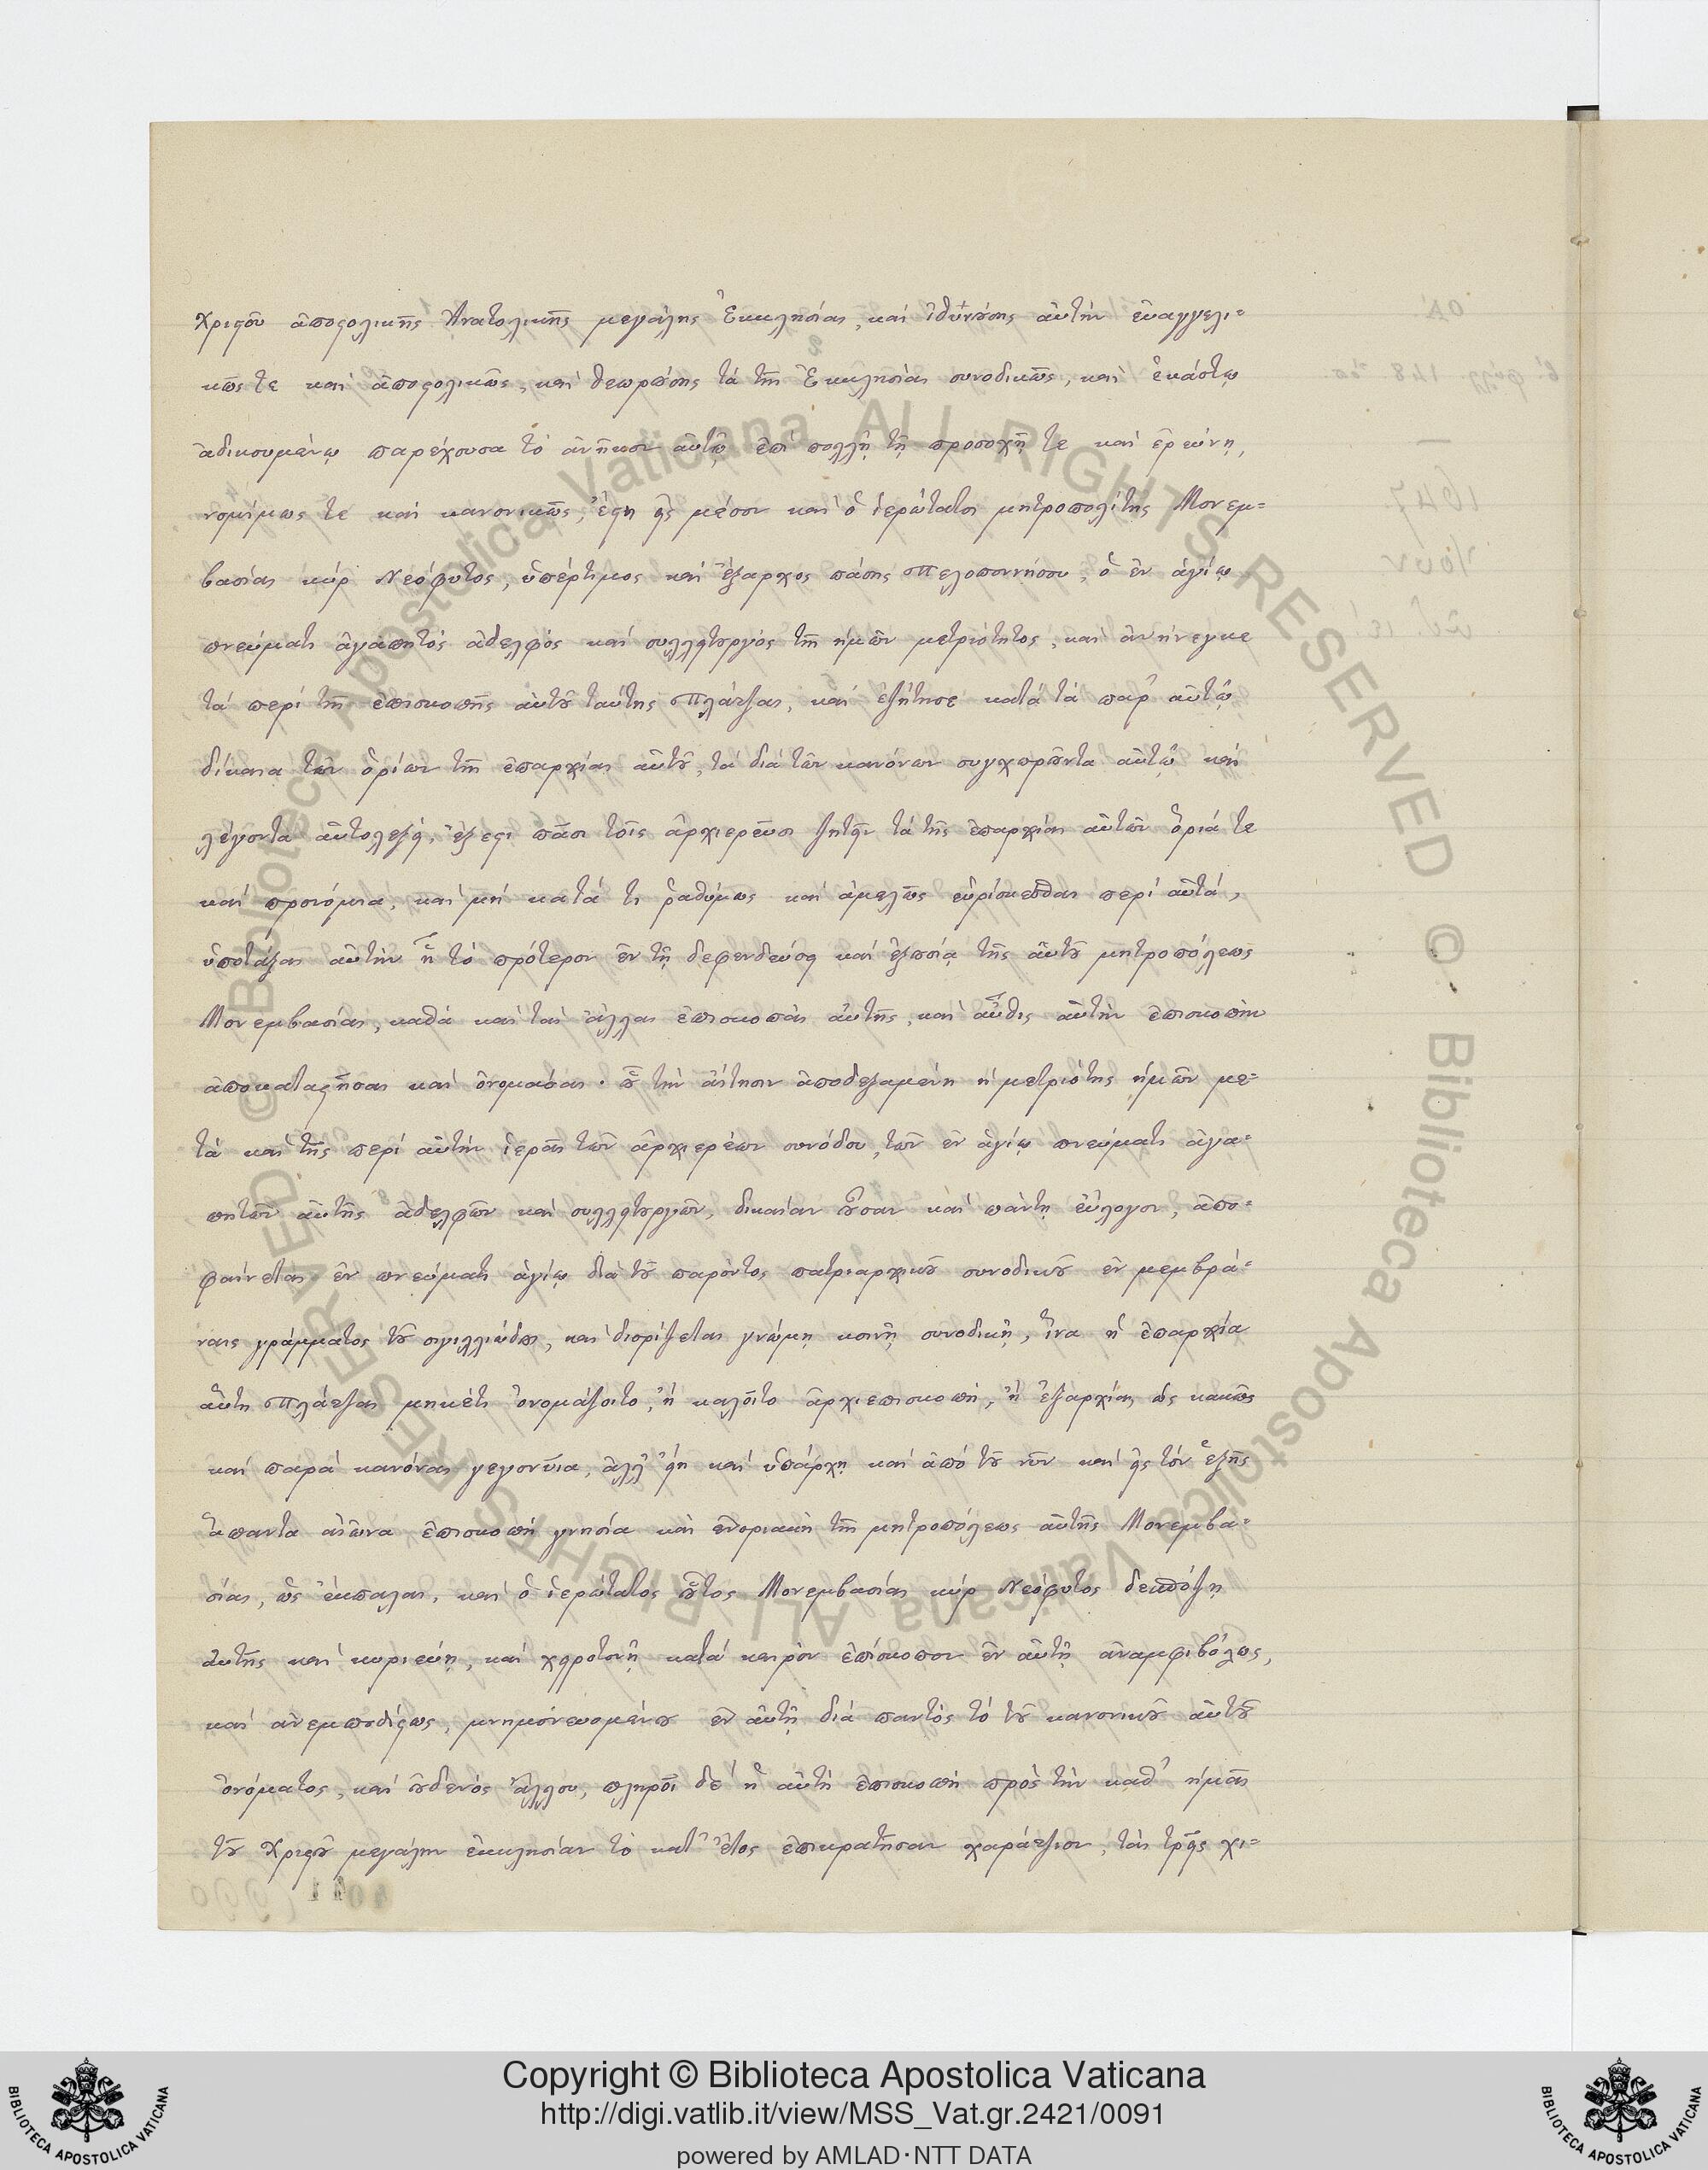 Χριστοῦ ἀποστολικῆς Ἀνατολικῆς μεγάλης Ἐκκλησίας, καὶ ἰθυνούσης αὐτὴν εὐαγγελι=
κῶς τε καὶ ἀποστολικῶς, καὶ θεωρούσης τὰ τῆς Ἐκκλησίας συνοδικῶς, καὶ ἑκάστῳ
ἀδικουμένῳ παρέχουσα τὸ ἀνῆκον αὐτῷ ἐπὶ πολλῇ τῇ προσοχῇ τε καὶ ἐρεύνῃ,
νομίμως τε καὶ κανονικῶς, ἔστη εἰς μέσον καὶ ὁ ἱερώτατος μητροπολίτης Μονεμ=
βασίας κύρ Νεόφυτος, ὑπέρτιμος καὶ ἔξαρχος πάσης Πελοποννήσου, ὁ ἐν ἁγίῳ
πνεύματι ἀγαπητὸς ἀδελφὸς καὶ συλλειτουργὸς τῆς ἡμῶν μετριότητος, καὶ ἀνήνεγκε
τὰ περὶ τῆς ἐπισκοπῆς αὐτοῦ ταύτης Πλάτζας, καὶ ἐζήτησε κατὰ τὰ παρ' αὐτῷ
δίκαια τῶν ὁρίων τῆς ἐπαρχίας αὐτοῦ, τὰ διὰ τῶν κανόνων συγχωροῦντα αὐτῷ καὶ
λέγοντα αὐτολεξεί, ἔξεστι πᾶσι τοῖς ἀρχιερεῦσι ζητεῖν τὰ τῆς ἐπαρχίας αὐτῶν ὅριά τε
καὶ προνόμια, καὶ μὴ κατά τι ῥαθύμως καὶ ἀμελῶς εὑρίσκεσθαι περὶ αὐτά,
ὑποτάξαι αὐτὴν ᾗ τὸ πρότερον ἐν τῇ δεφενδεύσει καὶ ἐξουσίᾳ τῆς αὐτοῦ μητροπόλεως
Μονεμβασίας, καθὰ καὶ τὰς ἄλλας ἐπισκοπὰς αὐτῆς, καὶ αὖθις αὐτὴν ἐπισκοπὴν
ἀποκαταστῆσαι καὶ ὀνομάσαι· οὗ τὴν αἴτησιν ἀποδεξαμένη ἡ μετριότης ἡμῶν με=
τὰ καὶ τῆς περὶ αὐτὴν ἱερᾶς τῶν ἀρχιερέων συνόδου, τῶν ἐν ἁγίῳ πνεύματι ἀγα=
πητῶν αὐτῆς ἀδελφῶν καὶ συλλειτουργῶν, δικαίαν οὖσαν καὶ πάντῃ εὔλογον, ἀπο=
φαίνεται ἐν πνεύματι ἁγίῳ διὰ τοῦ παρόντος πατριαρχικοῦ συνοδικοῦ ἐν μεμβρά=
ναις γράμματος τοῦ σιγιλλιώδους, καὶ διορίζεται γνώμῃ κοινῇ συνοδικῇ, ἵνα ἡ ἐπαρχία
αὕτη Πλάτζας μηκέτι ὀνομάζοιτο, ἢ καλοῖτο ἀρχιεπισκοπή, ἢ ἐξαρχία, ὡς κακῶς
καὶ παρὰ κανόνας γεγονυῖα, ἀλλ' εἴη καὶ ὑπάρχῃ καὶ ἀπὸ τοῦ νῦν καὶ εἰς τὸν ἑξῆς
ἅπαντα αἰῶνα ἐπισκοπὴ γνησία καὶ ἐνοριακὴ τῆς μητροπόλεως αὐτῆς Μονεμβα=
σίας, ὡς ἔκπαλαι, καὶ ὁ ἱερώτατος οὗτος Μονεμβασίας κύρ Νεόφυτος δεσπόζῃ
αὐτῆς καὶ κυριεύῃ, καὶ χειροτονῇ κατὰ καιρὸν ἐπίσκοπον ἐν αὐτῇ ἀναμφιβόλως,
καὶ ἀνεμποδίστως, μνημονευομένου ἐν αὐτῇ διὰ παντὸς τὸ τοῦ κανονικοῦ αὐτοῦ
ὀνόματος, καὶ οὐδενὸς ἄλλου, πληροῖ δὲ ἡ αὐτὴ ἐπισκοπὴ πρὸς τὴν καθ' ἡμᾶς
τοῦ Χριστοῦ μεγάλην ἐκκλησίαν τὸ κατ' ἔτος ἐπικρατῆσαν χαράτζιον, τὰς τρεῖς χι=
Copyright © Biblioteca Apostolica Vaticana
http://digi.vatlib.it/view/MSS_Vat.gr.2421/0091
powered by AMLAD·NTT DATA